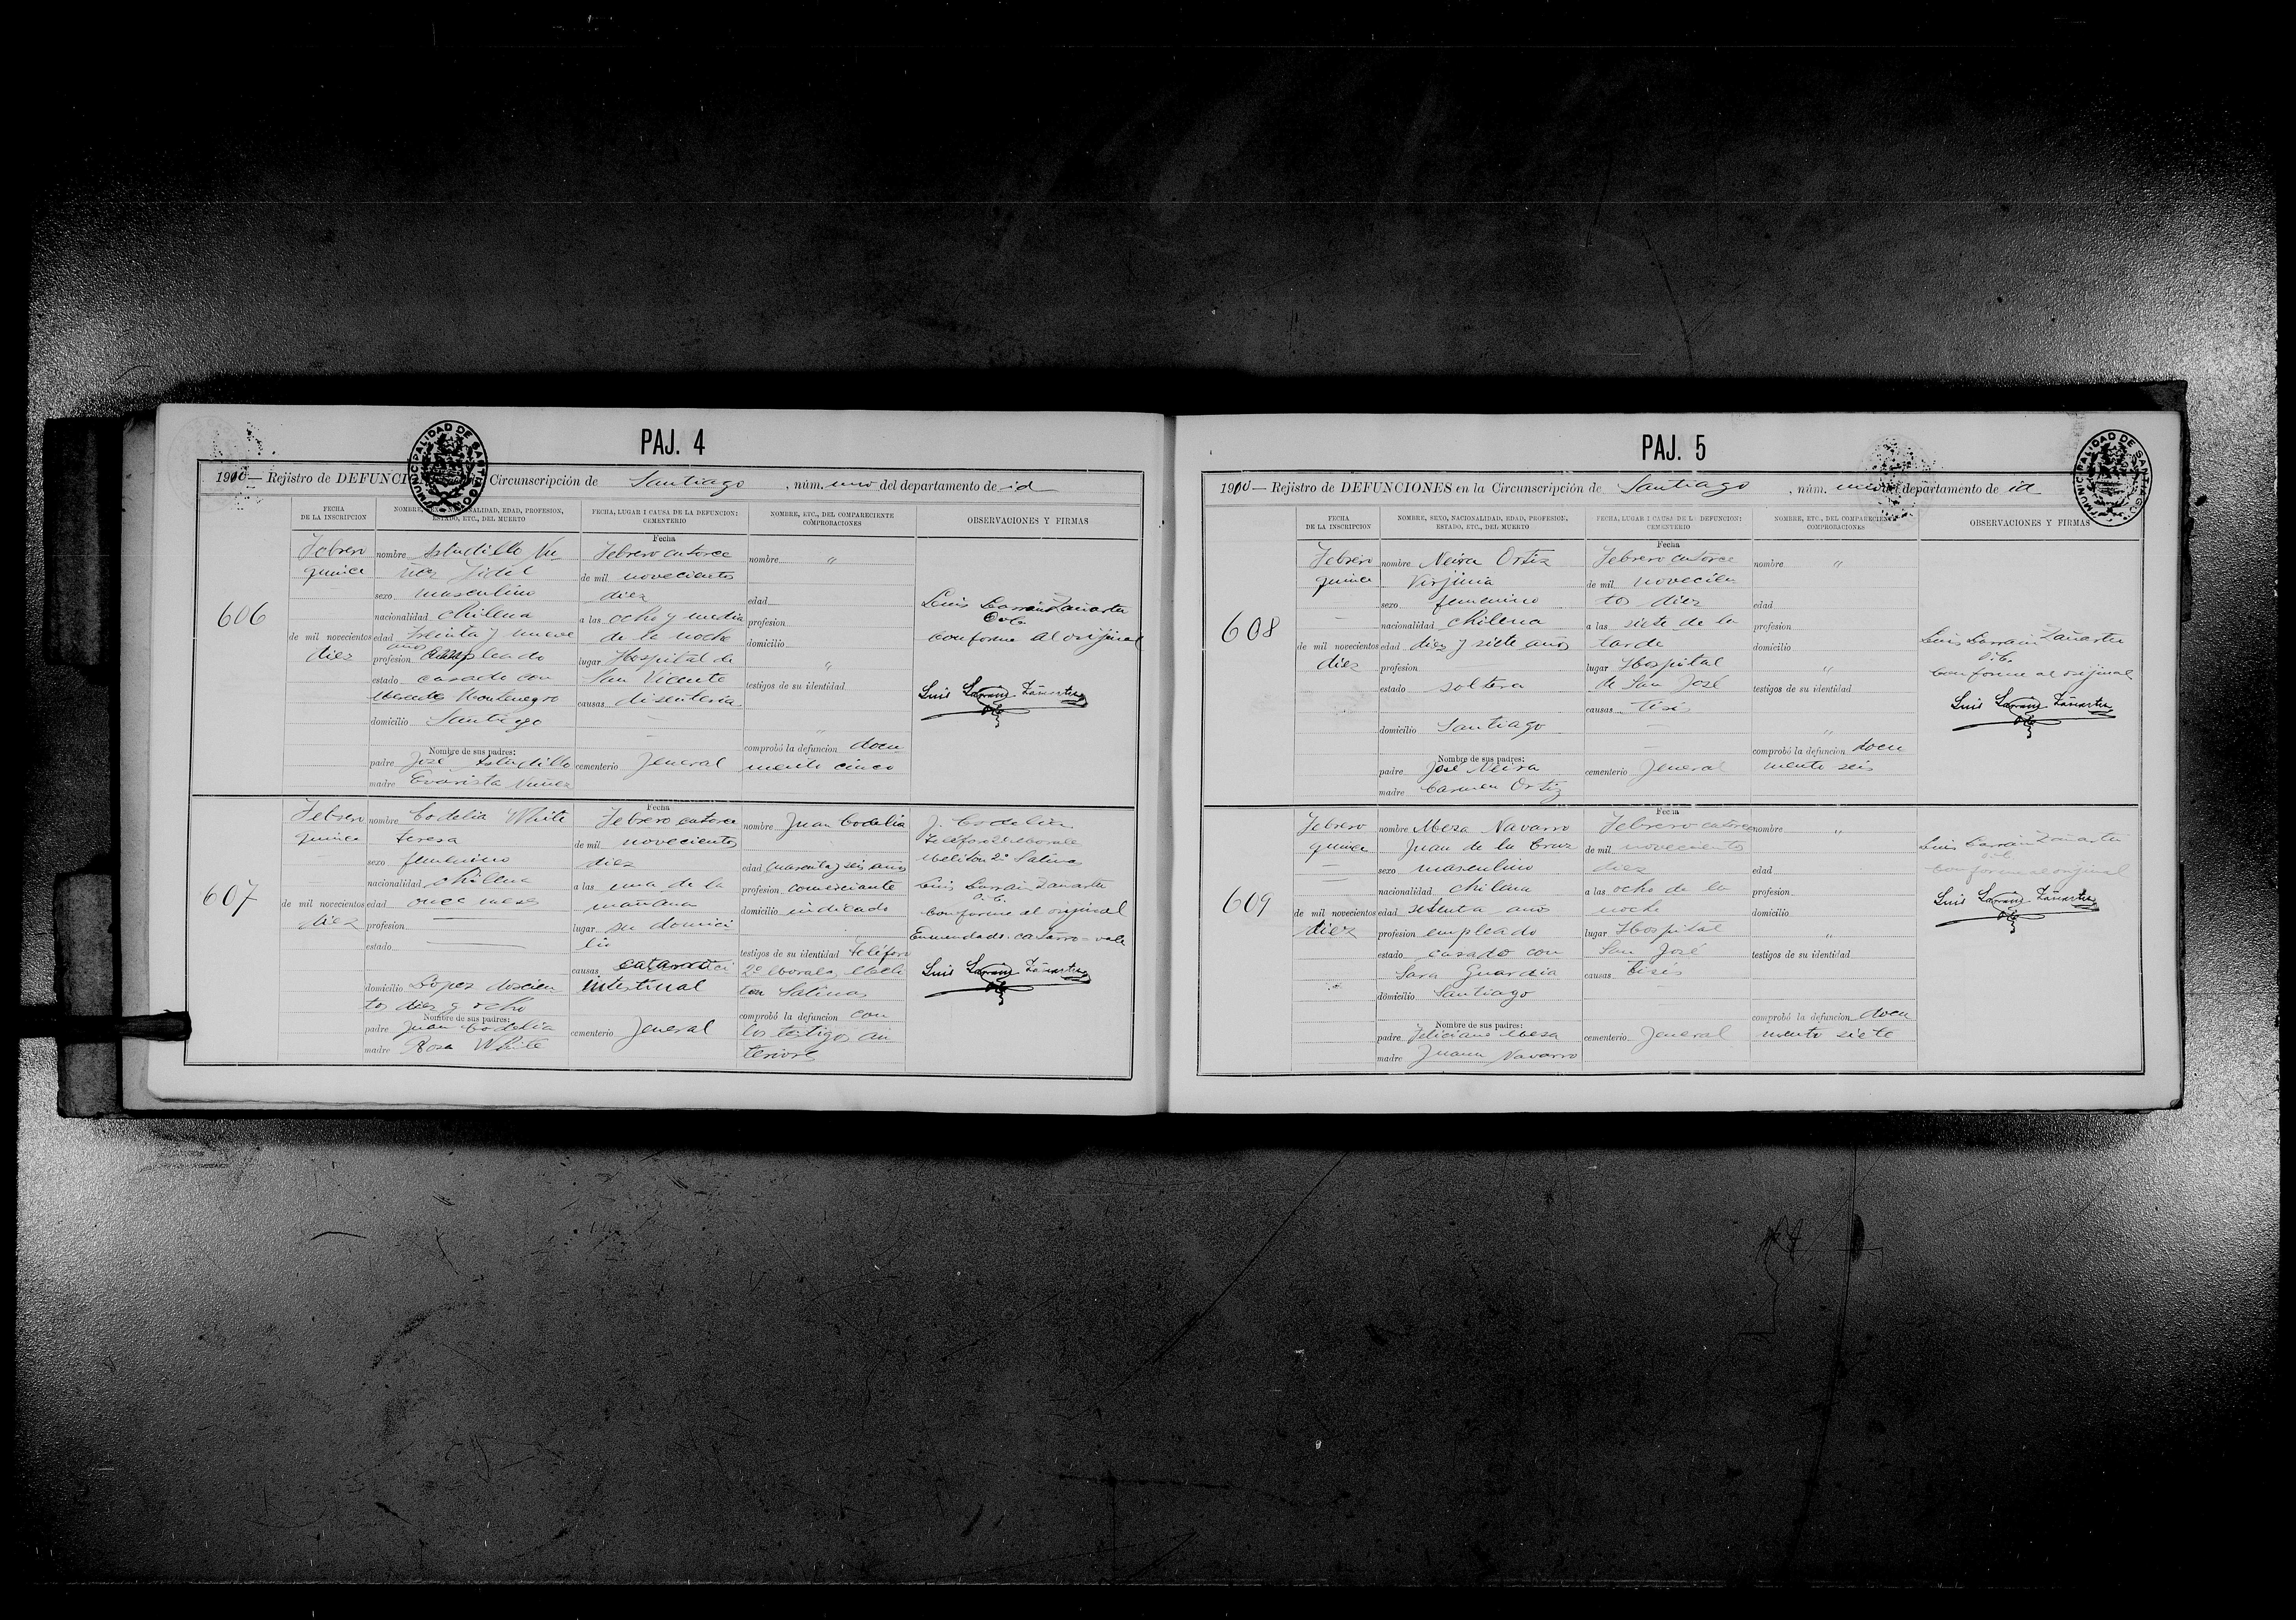 PAJ. 4
MUNICIPALIDAD DE SANTIAGO
1910 — Rejistro de DEFUNCI Circunscripción de Santiago, núm. uno del departamento de id
FECHA
DE LA INSCRIPCION
NOMBRE, NALIDAD, EDAD, PROFESION,
ESTADO, ETC., DEL MUERTO
FECHA, LUGAR I CAUSA DE LA DEFUNCION:
CEMENTERIO
NOMBRE, ETC., DEL COMPARECIENTE
COMPROBACIONES
OBSERVACIONES Y FIRMAS
606
Febrero
quince
de mil novecientos
diez
nombre Astudillo Nu
ñez Fidel
sexo masculino
nacionalidad chilena
edad treinta y nueve
años
profesion empleado
estado casado con
Mercedes Montenegro
domicilio Santiago
Nombre de sus padres:
padre José Astudillo
madre Evarista Nuñez
Fecha
Febrero catorce
de mil novecientos
diez
a las ocho y media
de la noche
lugar Hospital de
San Vicente
causas disenteria
cementerio Jeneral
nombre "
edad
profesion
domicilio
"
testigos de su identidad
"
comprobó la defuncion docu
mento cinco
Luis Larrain Zañartu
O.C.
Conforme al orijinal
Luis Larrain Zañartu
607
Febrero
quince
de mil novecientos
diez
nombre Codelia White
Teresa
sexo femenino
nacionalidad chilena
edad once meses
profesion
estado
domicilio Lopez doscien
tos diez y ocho
Nombre de sus padres:
padre Juan Codelia
madre Rosa White
Fecha
Febrero catorce
de mil novecientos
diez
a las una de la
mañana
lugar su domici
lio
causas catarro
intestinal
cementerio Jeneral
nombre Juan Codelia
edad cuarenta y seis años
profesion comerciante
domicilio indicado
testigos de su identidad Teléforo
2º Morales, Meli
ton Salinas
comprobó la defuncion con
los testigos an
teriores
J. Codelia
Teléforo 2º Morales
Meliton 2º Salinas
Luis Larrain Zañartu
O.C.
Conforme al orijinal
Enmendado: catarro = vale
Luis Larrain Zañartu
PAJ. 5
MUNICIPALIDAD DE SANTIAGO
1910 — Rejistro de DEFUNCIONES en la Circunscripción de Santiago, núm. uno del departamento de id
FECHA
DE LA INSCRIPCION
NOMBRE, SEXO, NACIONALIDAD, EDAD, PROFESION,
ESTADO, ETC., DEL MUERTO
FECHA, LUGAR I CAUSA DE LA DEFUNCION:
CEMENTERIO
NOMBRE, ETC., DEL COMPARECIENTE
COMPROBACIONES
OBSERVACIONES Y FIRMAS
608
Febrero
quince
de mil novecientos
diez
nombre Neira Ortiz
Virjinia
sexo femenino
nacionalidad chilena
edad diez y siete años
profesion
estado soltera
domicilio Santiago
Nombre de sus padres:
padre José Neira
madre Carmen Ortiz
Fecha
Febrero catorce
de mil novecien
tos diez
a las siete de la
tarde
lugar Hospital
de San José
causas tisis
cementerio Jeneral
nombre "
edad
profesion
domicilio
"
testigos de su identidad
"
comprobó la defuncion docu
mento seis
Luis Larrain Zañartu
O.C.
Conforme al orijinal
Luis Larrain Zañartu
609
Febrero
quince
de mil novecientos
diez
nombre Meza Navarro
Juan de la Cruz
sexo masculino
nacionalidad chilena
edad setenta años
profesion empleado
estado casado con
Sara Guardia
domicilio Santiago
Nombre de sus padres:
padre Feliciano Meza
madre Juana Navarro
Fecha
Febrero catorce
de mil novecientos
diez
a las ocho de la
noche
lugar Hospital
San José
causas tisis
cementerio Jeneral
nombre "
edad
profesion
domicilio
"
testigos de su identidad
comprobó la defuncion docu
mento siete
Luis Larrain Zañartu
O.C.
Conforme al orijinal
Luis Larrain Zañartu